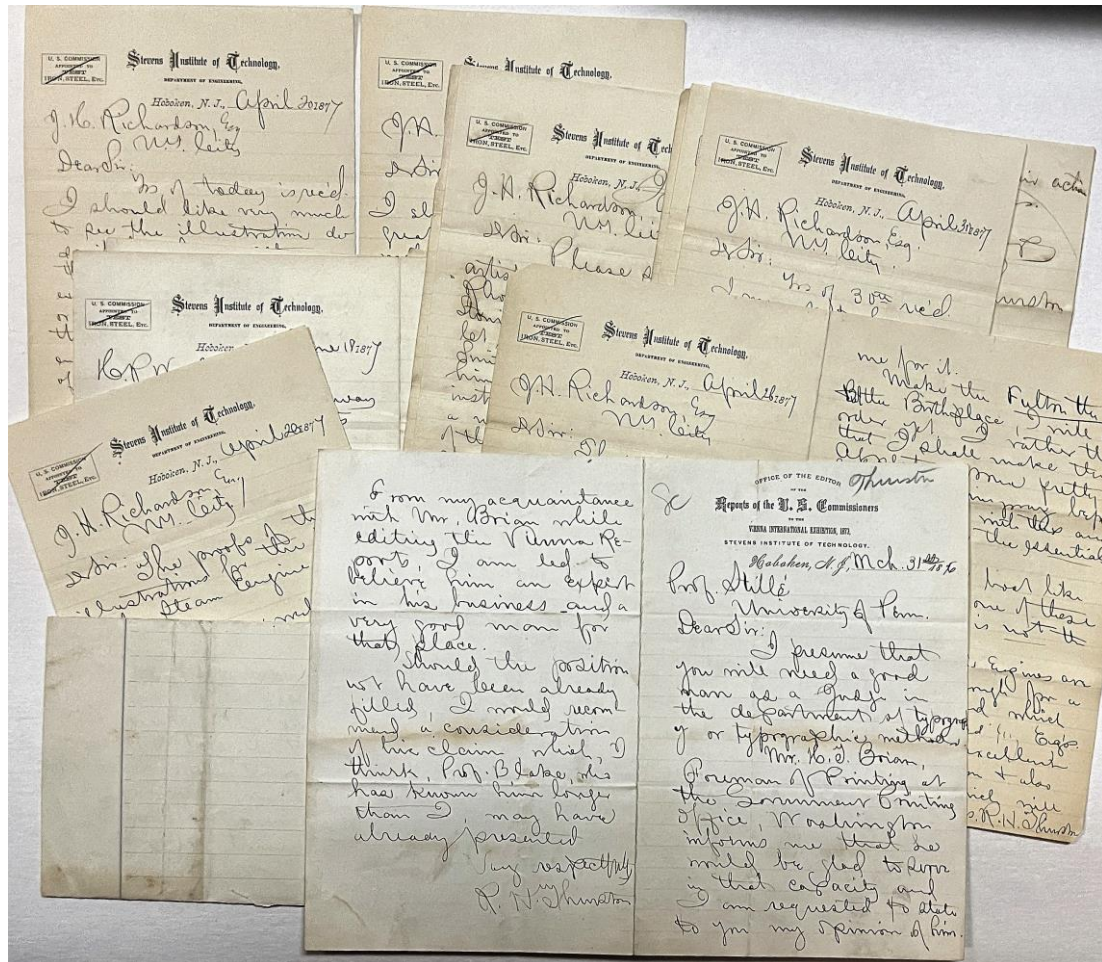 U. S. COMMISSION
APPOINTED TO
TEST
IRON, STEEL, Etc.
Stevens Institute of Technology.
DEPARTMENT OF ENGINEERING,
Hoboken, N. J., April 20 1877
J. H. Richardson, Esq
N.Y. City
Dear Sir:
Yrs of today is rec'd.
I should like very much
to see the illustration do
Stevens Institute of Technology.
DEPARTMENT OF ENGINEERING,
J.H.
D Sir
I
U. S. COMMISSION
APPOINTED TO
TEST
IRON, STEEL, Etc.
Stevens Institute of Tech
DEPARTMENT OF ENGINEERING,
Hoboken, N. J.,
J. H. Richardson,
N.Y. Cit
D Sir:
Please s
artis
let
him
inst
of th
U. S. COMMISSION
APPOINTED TO
TEST
IRON, STEEL, Etc.
Stevens Institute of Technology.
DEPARTMENT OF ENGINEERING,
Hoboken, N. J., April 3 1877
J. H. Richardson, Esq.
N.Y. City.
D Sir:
Yrs of 30th rec'd.
action
U. S. COMMISSION
APPOINTED TO
TEST
IRON, STEEL, Etc.
Stevens Institute of Technology.
DEPARTMENT OF ENGINEERING,
Hoboken, ne 18 1877
way
U. S. COMMISSION
APPOINTED TO
TEST
IRON, STEEL, Etc.
Stevens Institute of Technology.
DEPARTMENT OF ENGINEERING,
Hoboken, N. J., April 26 1877
J. H. Richardson, Esq
N.Y. City
D Sir:
U. S. COMMISSION
APPOINTED TO
TEST
IRON, STEEL, Etc.
Stevens Institute of Technology.
DEPARTMENT OF ENGINEERING,
Hoboken, N. J., April 20 1877
J. H. Richardson, Esq
N.Y. City
D Sir: The proofs of the
illustrations for the
Steam Engine
me for it.
Make the Fulton the
Birthplace, I will
order yet. I rather th
that I shall make the
some pretty
bef
with this an
the essential
look like
one of these
is not th
Engines are
ugh for a
d which
Eng's.
excellent
n & also
will
R. H. Thurston
From my acquaintance
with Mr. Brian while
editing the Vienna Re-
port, I am led to
believe him an expert
in his business and a
very good man for
that place.
Should the position
not have been already
filled, I would recom
mend a consideration
of his claim which, I
think, Prof. Blake, who
has known him longer
than I, may have
already presented
Very respectfully
R. H. Thurston
OFFICE OF THE EDITOR
Thurston
OF THE
Reports of the U. S. Commissioners
TO THE
VIENNA INTERNATIONAL EXHIBITION, 1873,
STEVENS INSTITUTE OF TECHNOLOGY.
Hoboken, N. J., Mch. 31st 1876
Prof. Stillé
University of Penn.
Dear Sir:
I presume that
you will need a good
man as a Judge in
the department of typogra
y or typographic methods
Mr. H. T. Brian,
Foreman of Printing at
the Government Printing
Office, Washington
informs me that he
would be glad to serve
in that capacity and
I am requested to state
to you my opinion of him.